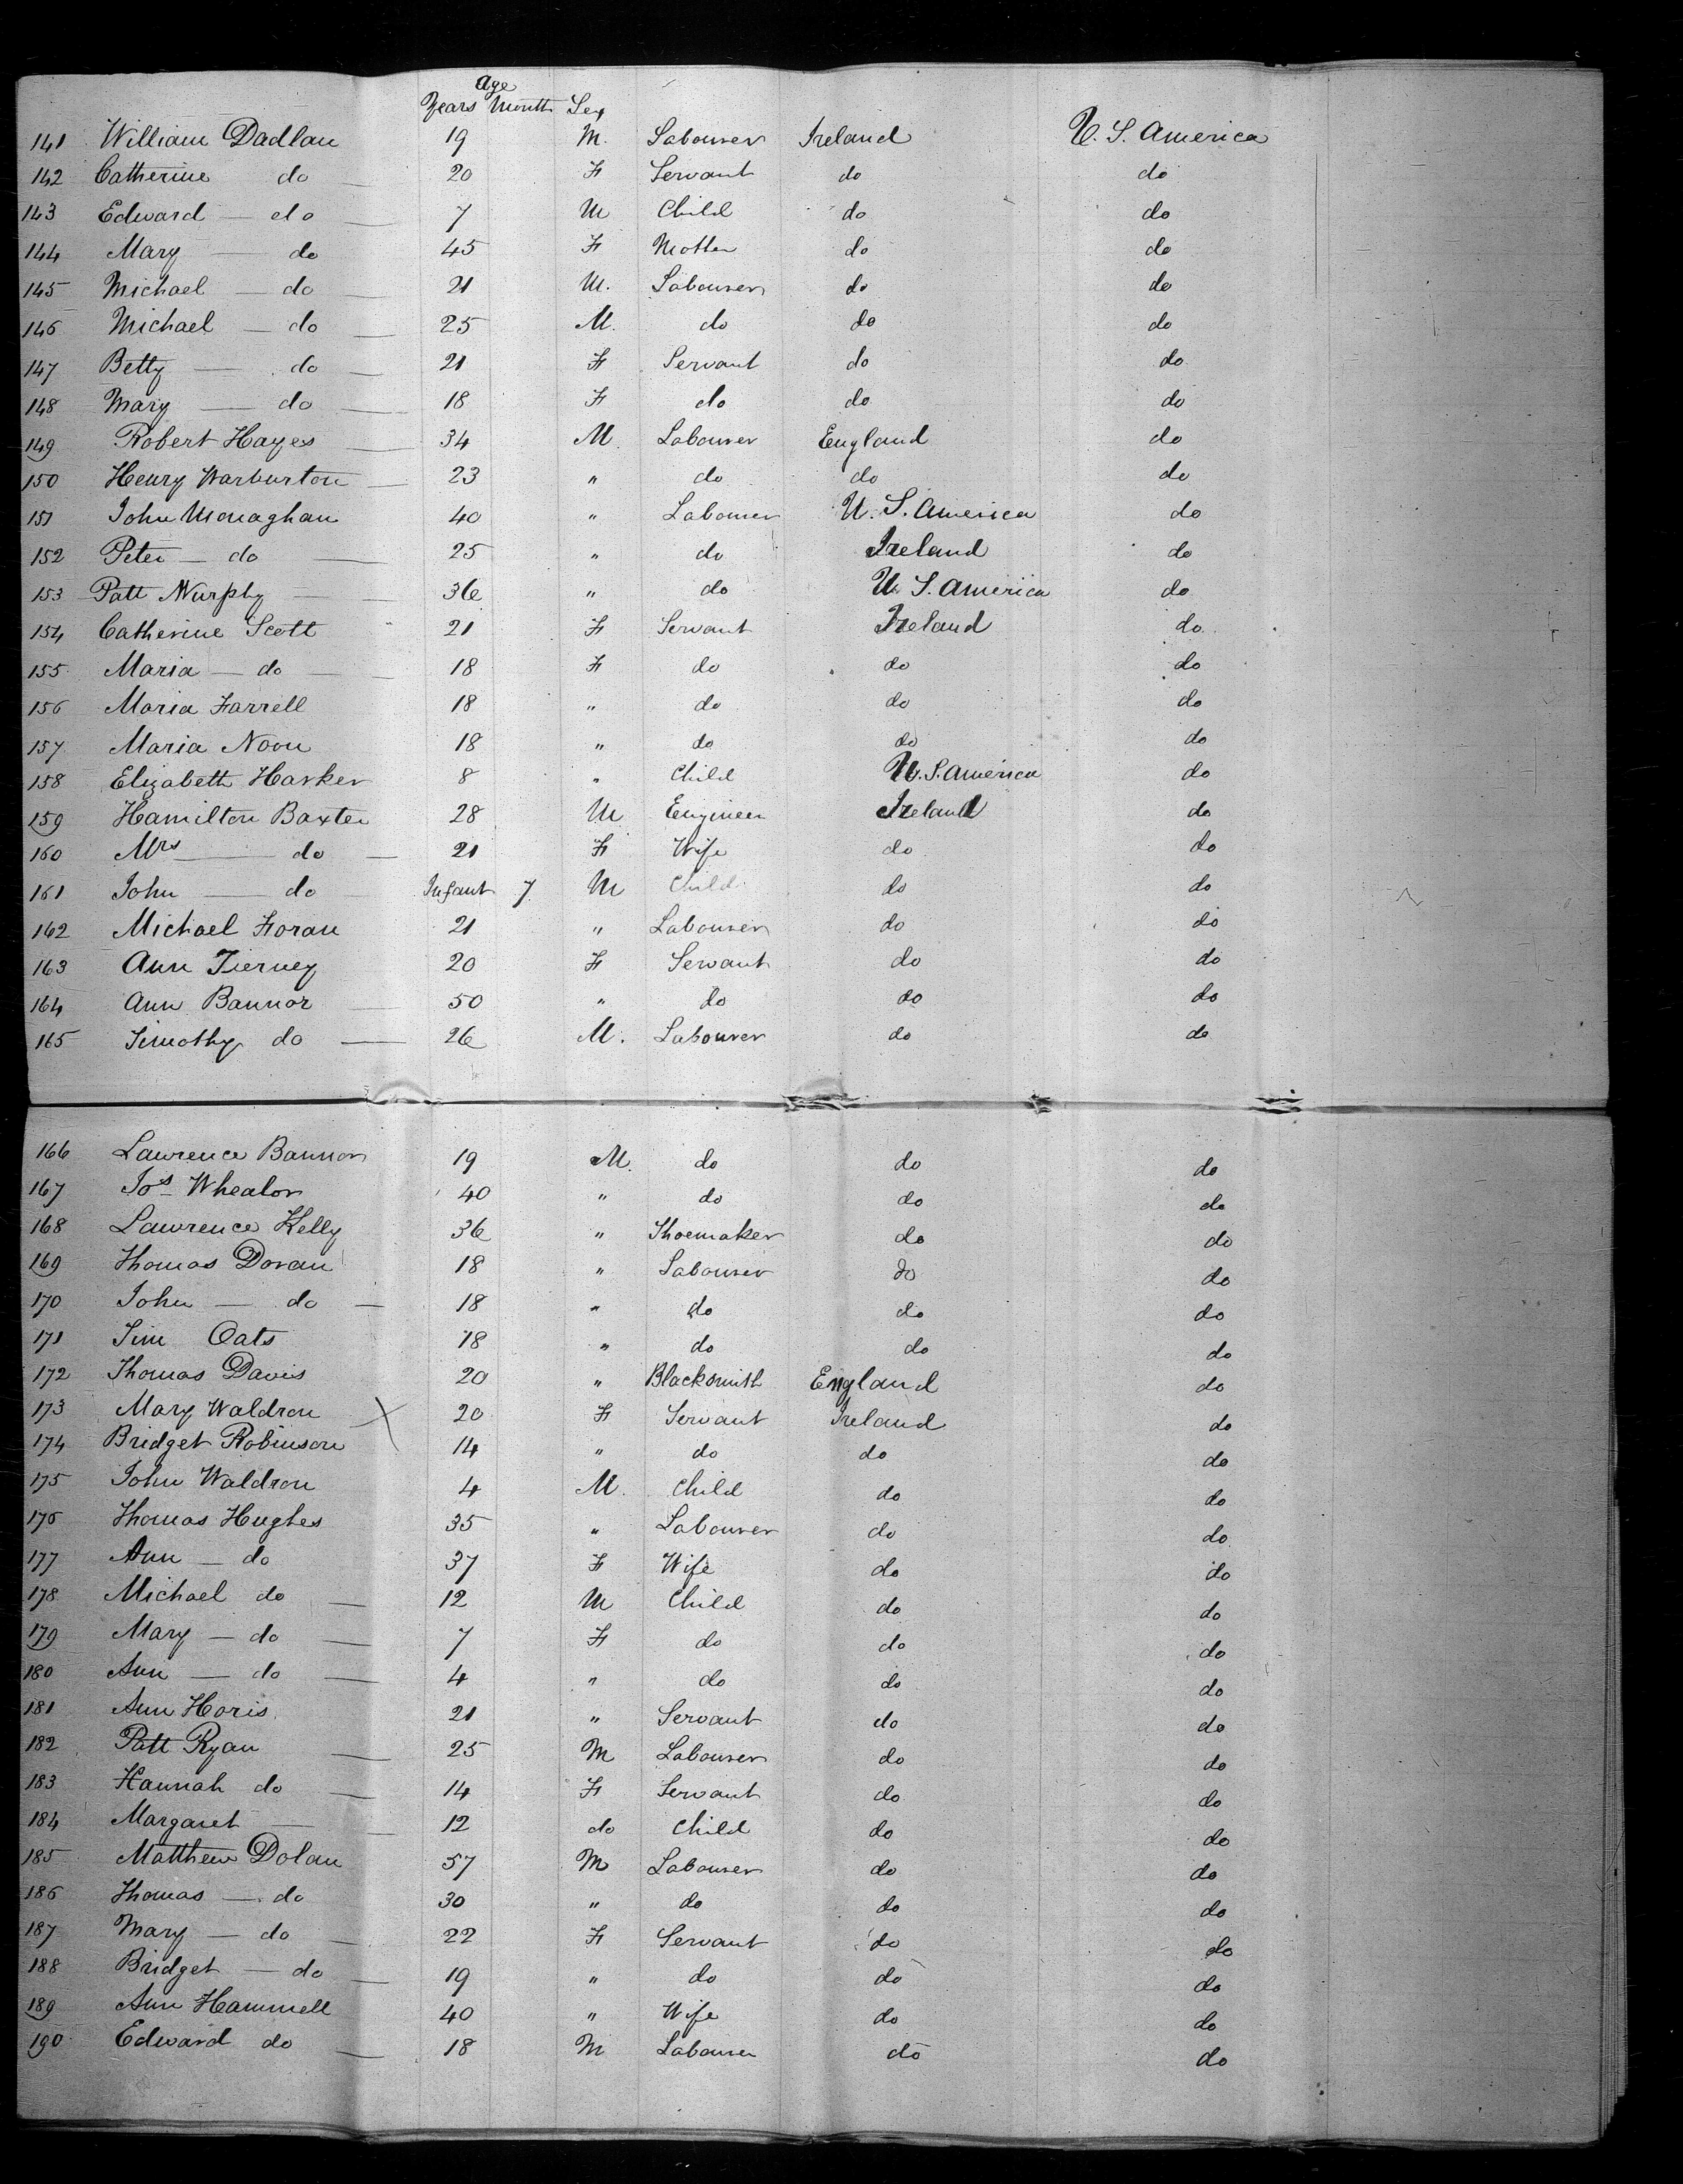 Age
Years Month Sex
141 William Dadlan 19 M. Labourer Ireland U. S. America
142 Catherine do 20 F Servant do do
143 Edward do 7 M Child do do
144 Mary do 45 F Mother do do
145 Michael do 21 M. Labourer do do
146 Michael do 25 M. do do do
147 Betty do 21 F Servant do do
148 Mary do 18 F do do do
149 Robert Hayes 34 M. Labourer England do
150 Henry Warburton 23 " do do do
151 John Monaghan 40 " Labourer U. S. America do
152 Peter do 25 " do Ireland do
153 Patt Murphy 36 " do U S. America do
154 Catherine Scott 21 F Servant Ireland do
155 Maria do 18 F do do do
156 Maria Farrell 18 " do do do
157 Maria Noon 18 " do do do
158 Elizabeth Harker 8 " Child U. S. America do
159 Hamilton Baxter 28 M Engineer Ireland do
160 Mrs do 21 F Wife do do
161 John do Infant 7 M Child do do
162 Michael Foran 21 " Labourer do do
163 Ann Tierney 20 F Servant do do
164 Ann Bannor 50 " do do do
165 Timothy do 26 M. Labourer do do
166 Lawrence Bannon 19 M. do do do
167 Jos Whealon 40 " do do do
168 Lawrence Kelly 36 " Shoemaker do do
169 Thomas Doran 18 " Labourer do do
170 John do 18 " do do do
171 Tim Oats 18 " do do do
172 Thomas Davis 20 " Blacksmith England do
173 Mary Waldron X 20 F Servant Ireland do
174 Bridget Robinson 14 " do do do
175 John Waldron 4 M. Child do do
176 Thomas Hughes 35 " Labourer do do
177 Ann do 37 F Wife do do
178 Michael do 12 M Child do do
179 Mary do 7 F do do do
180 Ann do 4 " do do do
181 Ann Horis 21 " Servant do do
182 Patt Ryan 25 M Labourer do do
183 Hannah do 14 F Servant do do
184 Margaret 12 do Child do do
185 Matthew Dolan 57 M Labourer do do
186 Thomas do 30 " do do do
187 Mary do 22 F Servant do do
188 Bridget do 19 " do do do
189 Ann Hammell 40 " Wife do do
190 Edward do 18 M Labourer do do